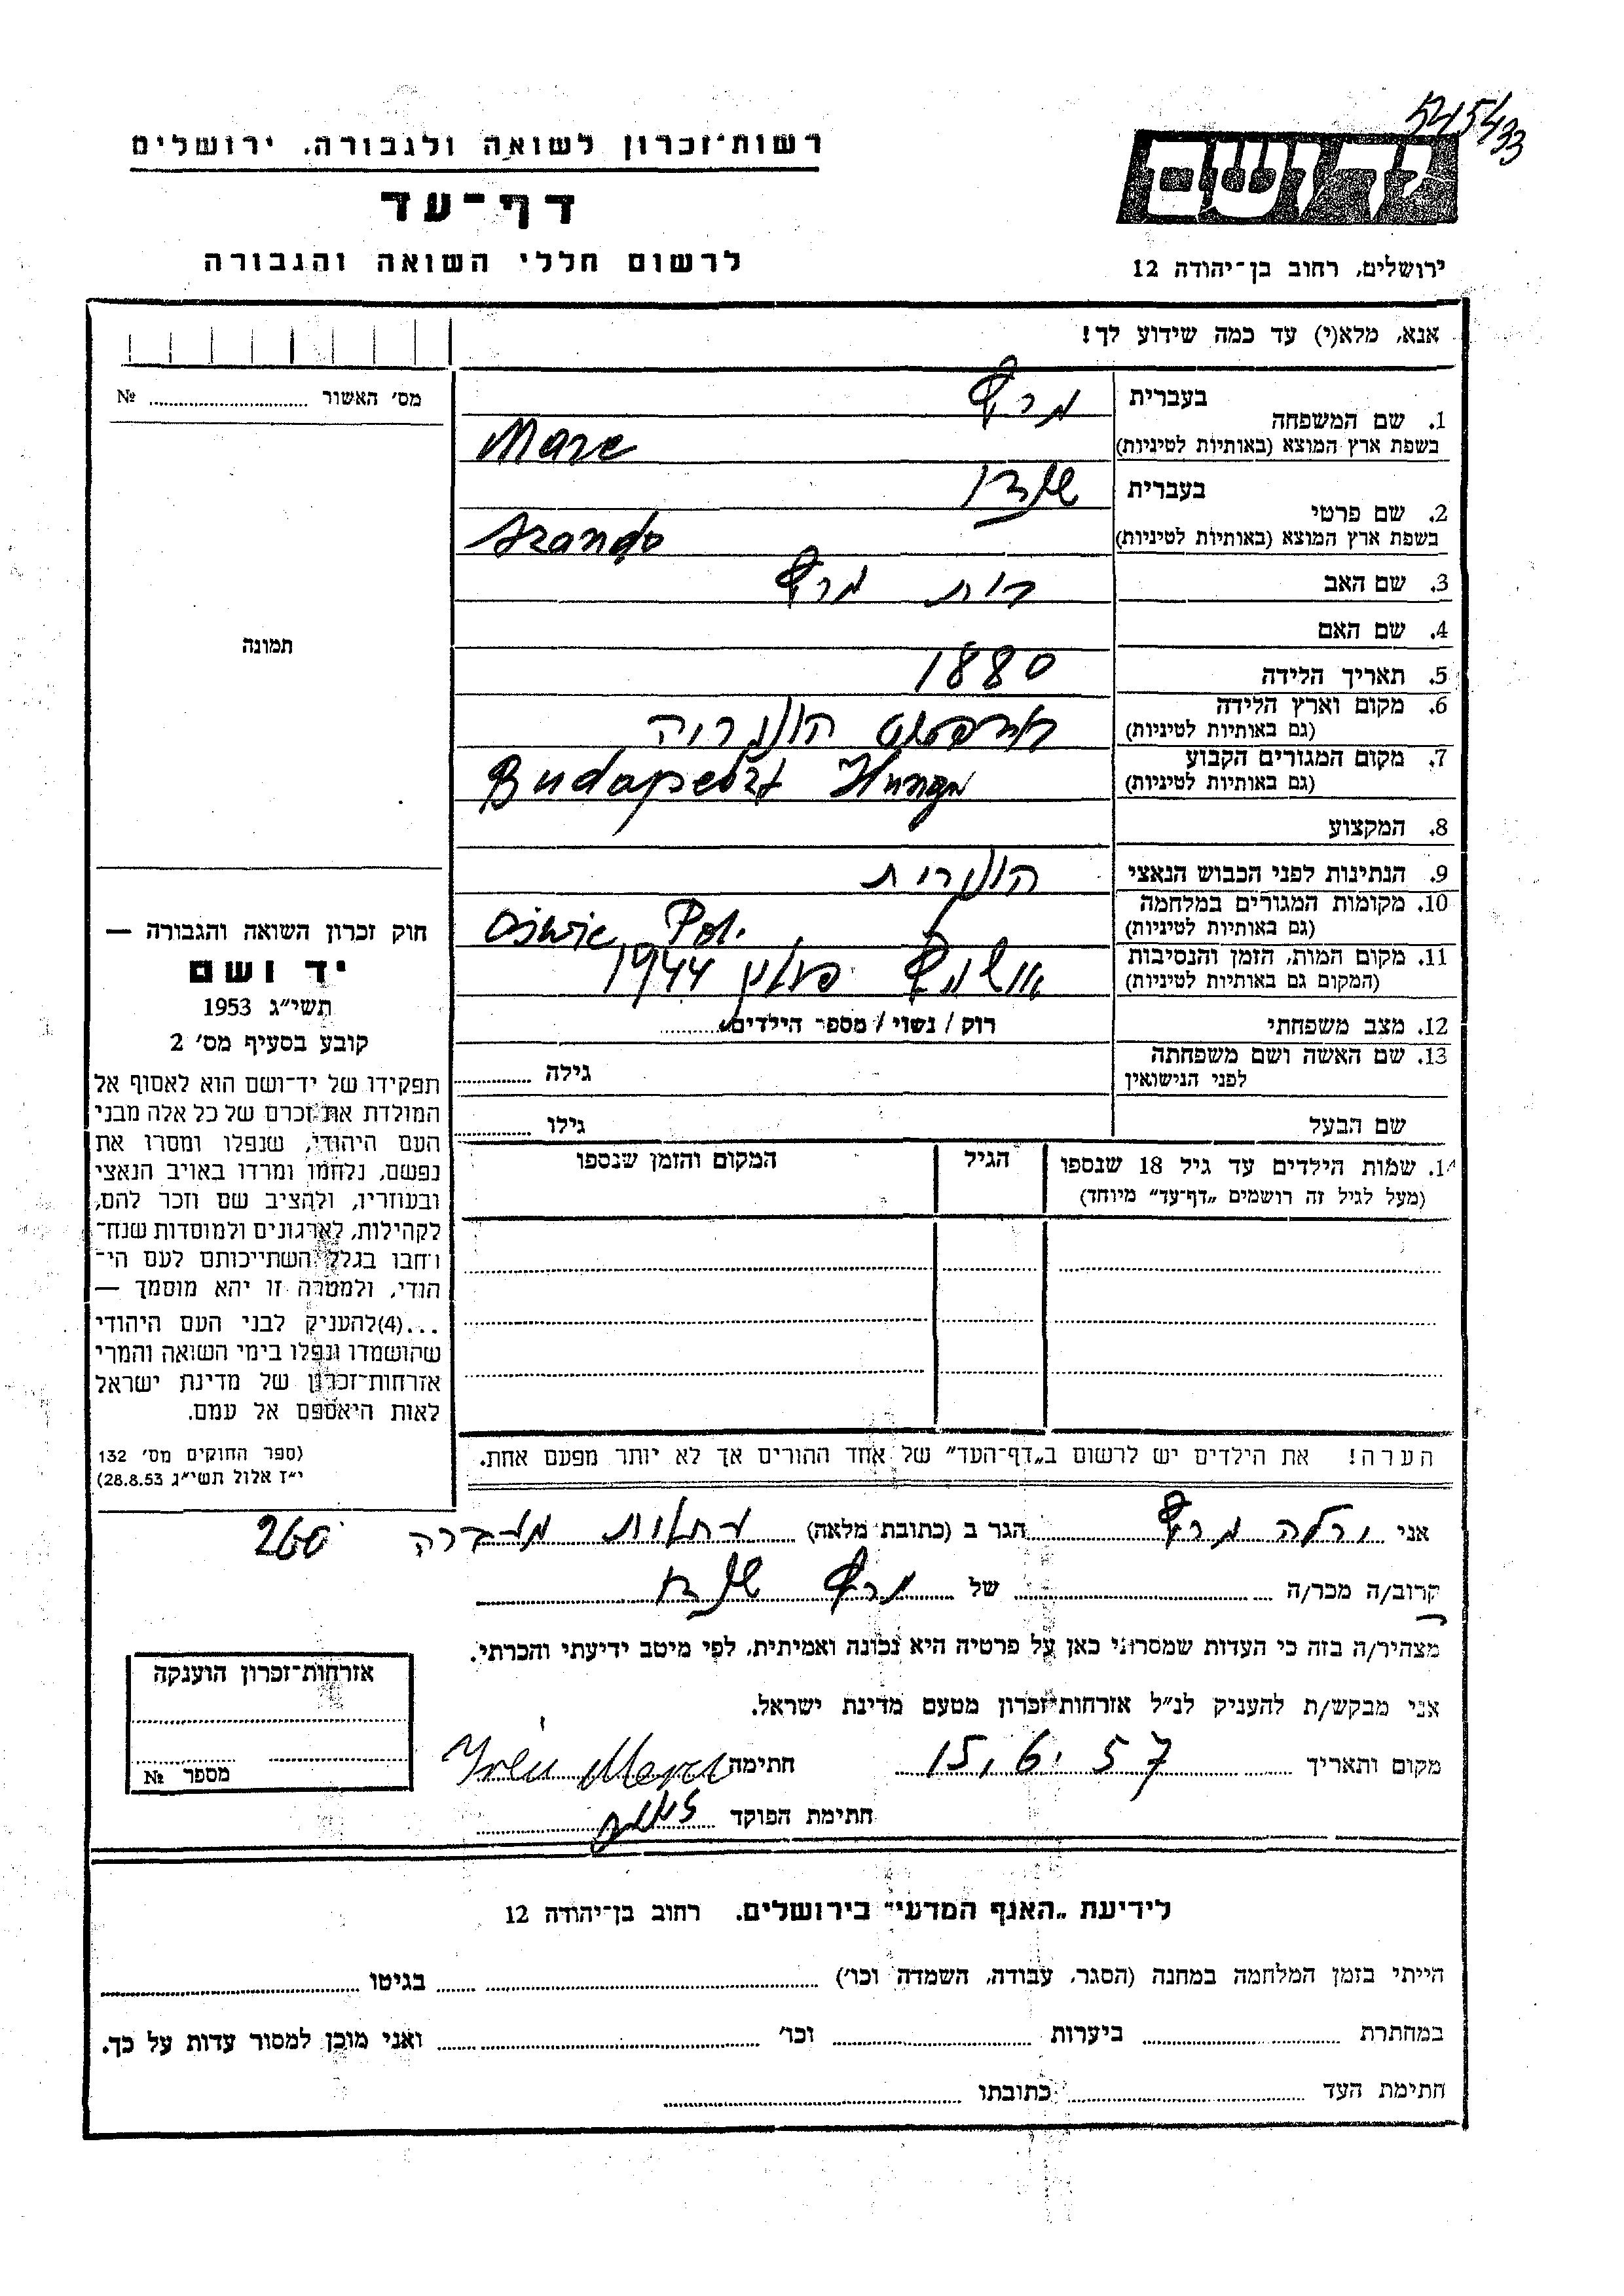 רשות־זכרון לשואה ולגבורה. ירושלים
דף־עד
לרשום חללי השואה והגבורה
יד ושם
ירושלים, רחוב בן־יהודה 12
אנא, מלא(י) עד כמה שידוע לך!
מס׳ האשור № 
תמונה
חוק זכרון השואה והגבורה —
יד ושם
תשי״ג 1953
קובע בסעיף מס׳ 2
תפקידו של יד־ושם הוא לאסוף אל
המולדת את זכרם של כל אלה מבני
העם היהודי, שנפלו ומסרו את
נפשם, נלחמו ומרדו באויב הנאצי
ובעוזריו, ולהציב שם וזכר להם,
לקהילות, לארגונים ולמוסדות שנח־
רחבו בגלל השתייכותם לעם הי־
הודי, ולמטרה זו יהא מוסמך —
...(4)להעניק לבני העם היהודי
שהושמדו ונפלו בימי השואה והמרי
אזרחות־זכרון של מדינת ישראל
לאות היאספם אל עמם.
(ספר החוקים מס׳ 132
י״ז אלול תשי״ג 28.8.53)
בעברית
1. שם המשפחה
בשפת ארץ המוצא (באותיות לטיניות) Mare
בעברית
2. שם פרטי
בשפת ארץ המוצא (באותיות לטיניות)
3. שם האב
4. שם האם
5. תאריך הלידה 1880
6. מקום וארץ הלידה
(גם באותיות לטיניות) הונגריה
7. מקום המגורים הקבוע
(גם באותיות לטיניות) Budapeszt
8. המקצוע
9. הנתינות לפני הכבוש הנאצי הונגרית
10. מקומות המגורים במלחמה
(גם באותיות לטיניות) Pol.
11. מקום המות, הזמן והנסיבות
(המקום גם באותיות לטיניות) פולין 1944
12. מצב משפחתי רוק / נשוי / מספר הילדים
13. שם האשה ושם משפחתה
לפני הנישואין גילה
שם הבעל גילו
14. שמות הילדים עד גיל 18 שנספו הגיל המקום והזמן שנספו
(מעל לגיל זה רושמים „דף־עד״ מיוחד)
הערה! את הילדים יש לרשום ב„דף־העד״ של אחד ההורים אך לא יותר מפעם אחת.
אני הגר ב (כתובת מלאה) מעברה 260
קרוב/ה מכר/ה של
מצהיר/ה בזה כי העדות שמסרתי כאן על פרטיה היא נכונה ואמיתית, לפי מיטב ידיעתי והכרתי.
אני מבקש/ת להעניק לנ״ל אזרחות־זכרון מטעם מדינת ישראל.
מקום ותאריך 15.6.57 חתימה
חתימת הפוקד
אזרחות־זכרון הוענקה
מספר №
לידיעת „האגף המדעי״ בירושלים. רחוב בן־יהודה 12
הייתי בזמן המלחמה במחנה (הסגר, עבודה, השמדה וכו׳) בגיטו
במחתרת ביערות וכו׳ ואני מוכן למסור עדות על כך.
חתימת העד כתובתו